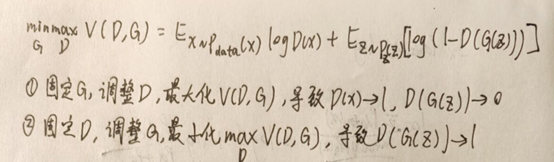 min max V(D,G) = E x~Pdata(x) log D(x) + E z~Pz(z) [log(1-D(G(z)))]
G D
① 固定G, 调整D, 最大化V(D,G), 导致D(x)→1, D(G(z))→0
② 固定D, 调整G, 最小化 max V(D,G), 导致D(G(z))→1
D